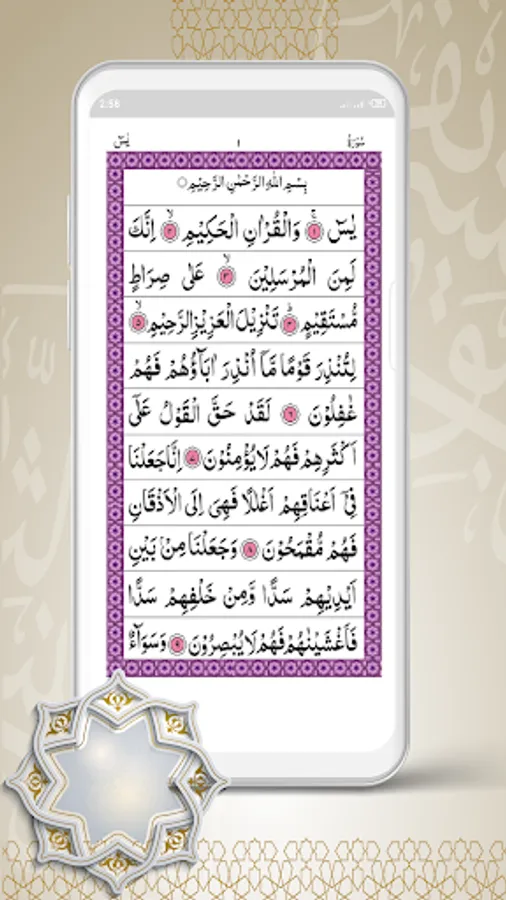 2:58
سُوْرَةُ ١ يٰسٓ
بِسْمِ اللّٰهِ الرَّحْمٰنِ الرَّحِيْمِ
يٰسٓ ۚ ﴿١﴾ وَالْقُرْاٰنِ الْحَكِيْمِ ۙ ﴿٢﴾ اِنَّكَ
لَمِنَ الْمُرْسَلِيْنَ ۙ ﴿٣﴾ عَلٰى صِرَاطٍ
مُّسْتَقِيْمٍ ؕ ﴿٤﴾ تَنْزِيْلَ الْعَزِيْزِ الرَّحِيْمِ ۙ ﴿٥﴾
لِتُنْذِرَ قَوْمًا مَّاۤ اُنْذِرَ اٰبَآؤُهُمْ فَهُمْ
غٰفِلُوْنَ ﴿٦﴾ لَقَدْ حَقَّ الْقَوْلُ عَلٰۤى
اَكْثَرِهِمْ فَهُمْ لَا يُؤْمِنُوْنَ ﴿٧﴾ اِنَّا جَعَلْنَا
فِيْۤ اَعْنَاقِهِمْ اَغْلٰلًا فَهِيَ اِلَى الْاَذْقَانِ
فَهُمْ مُّقْمَحُوْنَ ﴿٨﴾ وَجَعَلْنَا مِنْۢ بَيْنِ
اَيْدِيْهِمْ سَدًّا وَّمِنْ خَلْفِهِمْ سَدًّا
فَاَغْشَيْنٰهُمْ فَهُمْ لَا يُبْصِرُوْنَ ﴿٩﴾ وَسَوَآءٌ